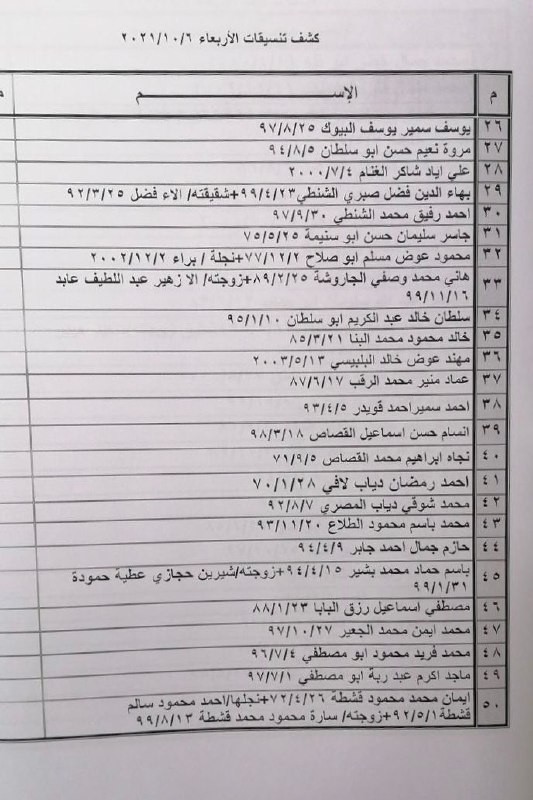 كشف تنسيقات الأربعاء ٢٠٢١/١٠/٦
م الإســـــــــــــم
٢٦ يوسف سمير يوسف البيوك ٩٧/٨/٢٥
٢٧ مروة نعيم حسن ابو سلطان ٩٤/٨/٥
٢٨ علي اياد شاكر الغنام ٢٠٠٠/٧/٤
٢٩ بهاء الدين فضل صبري الشنطي ٩٩/٤/٢٣+شقيقته/ الاء فضل ٩٢/٣/٢٥
٣٠ احمد رفيق محمد الشنطي ٩٧/٩/٣٠
٣١ جاسر سليمان حسن ابو سنيمة ٧٥/٥/٢٥
٣٢ محمود عوض مسلم ابو صلاح ٧٧/١٢/٢+نجلة / براء ٢٠٠٢/١٢/٢
٣٣ هاني محمد وصفي الجاروشة ٨٩/٢/٢٥+زوجته/ الا زهير عبد اللطيف عابد
٩٩/١١/١٦
٣٤ سلطان خالد عبد الكريم ابو سلطان ٩٥/١/١٠
٣٥ خالد محمود محمد البنا ٨٥/٣/٢١
٣٦ مهند عوض خالد البلبيسي ٢٠٠٣/٥/١٣
٣٧ عماد منير محمد الرقب ٨٧/٦/١٧
٣٨ احمد سميراحمد قويدر ٩٣/٤/٥
٣٩ انسام حسن اسماعيل القصاص ٩٨/٣/١٨
٤٠ نجاه ابراهيم محمد القصاص ٧١/٩/٥
٤١ احمد رمضان دياب لافي ٧٠/١/٢٨
٤٢ محمد شوقي دياب المصري ٩٢/٨/٧
٤٣ محمد باسم محمود الطلاع ٩٣/١١/٢٠
٤٤ حازم جمال احمد جابر ٩٤/٤/٩
٤٥ باسم حماد محمد بشير ٩٤/٤/١٥+زوجته/شيرين حجازي عطية حمودة
٩٩/١/٣١
٤٦ مصطفي اسماعيل رزق البابا ٨٨/١/٢٣
٤٧ محمد ايمن محمد الجعير ٩٧/١٠/٢٧
٤٨ محمد فريد محمود ابو مصطفي ٩٦/٧/٤
٤٩ ماجد اكرم عبد ربة ابو مصطفي ٩٧/٧/١
٥٠ ايمان محمد محمود قشطة ٧٢/٤/٢٦+نجلها/احمد محمود سالم
قشطة٩٢/٥/١+زوجته/ سارة محمود محمد قشطة ٩٩/٨/١٣